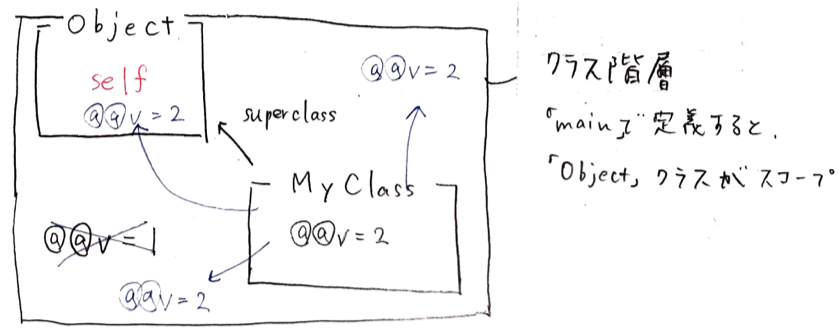 Object
self
@@v = 2
@@v = 2
superclass
My Class
@@v = 2
@@v = 1
@@v = 2
クラス階層
「main」で定義すると、
「Object」クラスがスコープ